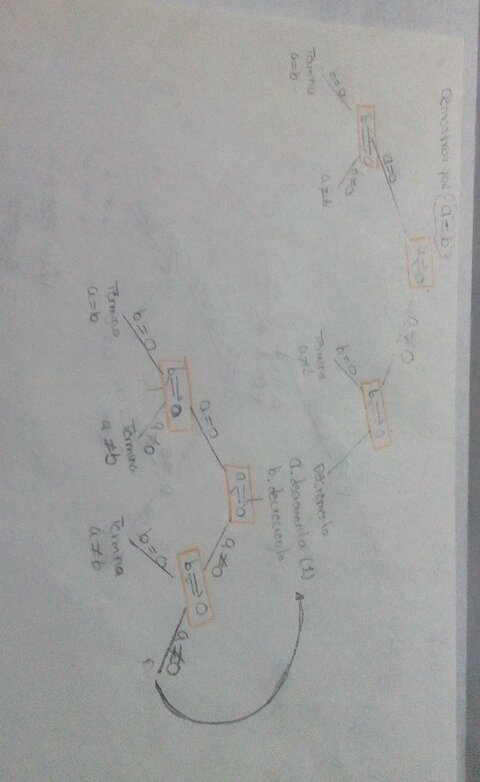 Demostrar que (a = b)
a = 0
a = 0
a ≠ 0
b = 0
b = 0
Termina
a = b
a ≠ b
b = 0
b = 0
Termina
a ≠ b
Decremento
a. decremento (1)
b. decremento
a = 0
a = 0
a ≠ 0
b = 0
b = 0
Termina
a = b
Termina
a ≠ b
b = 0
b = 0
Termina
a ≠ b